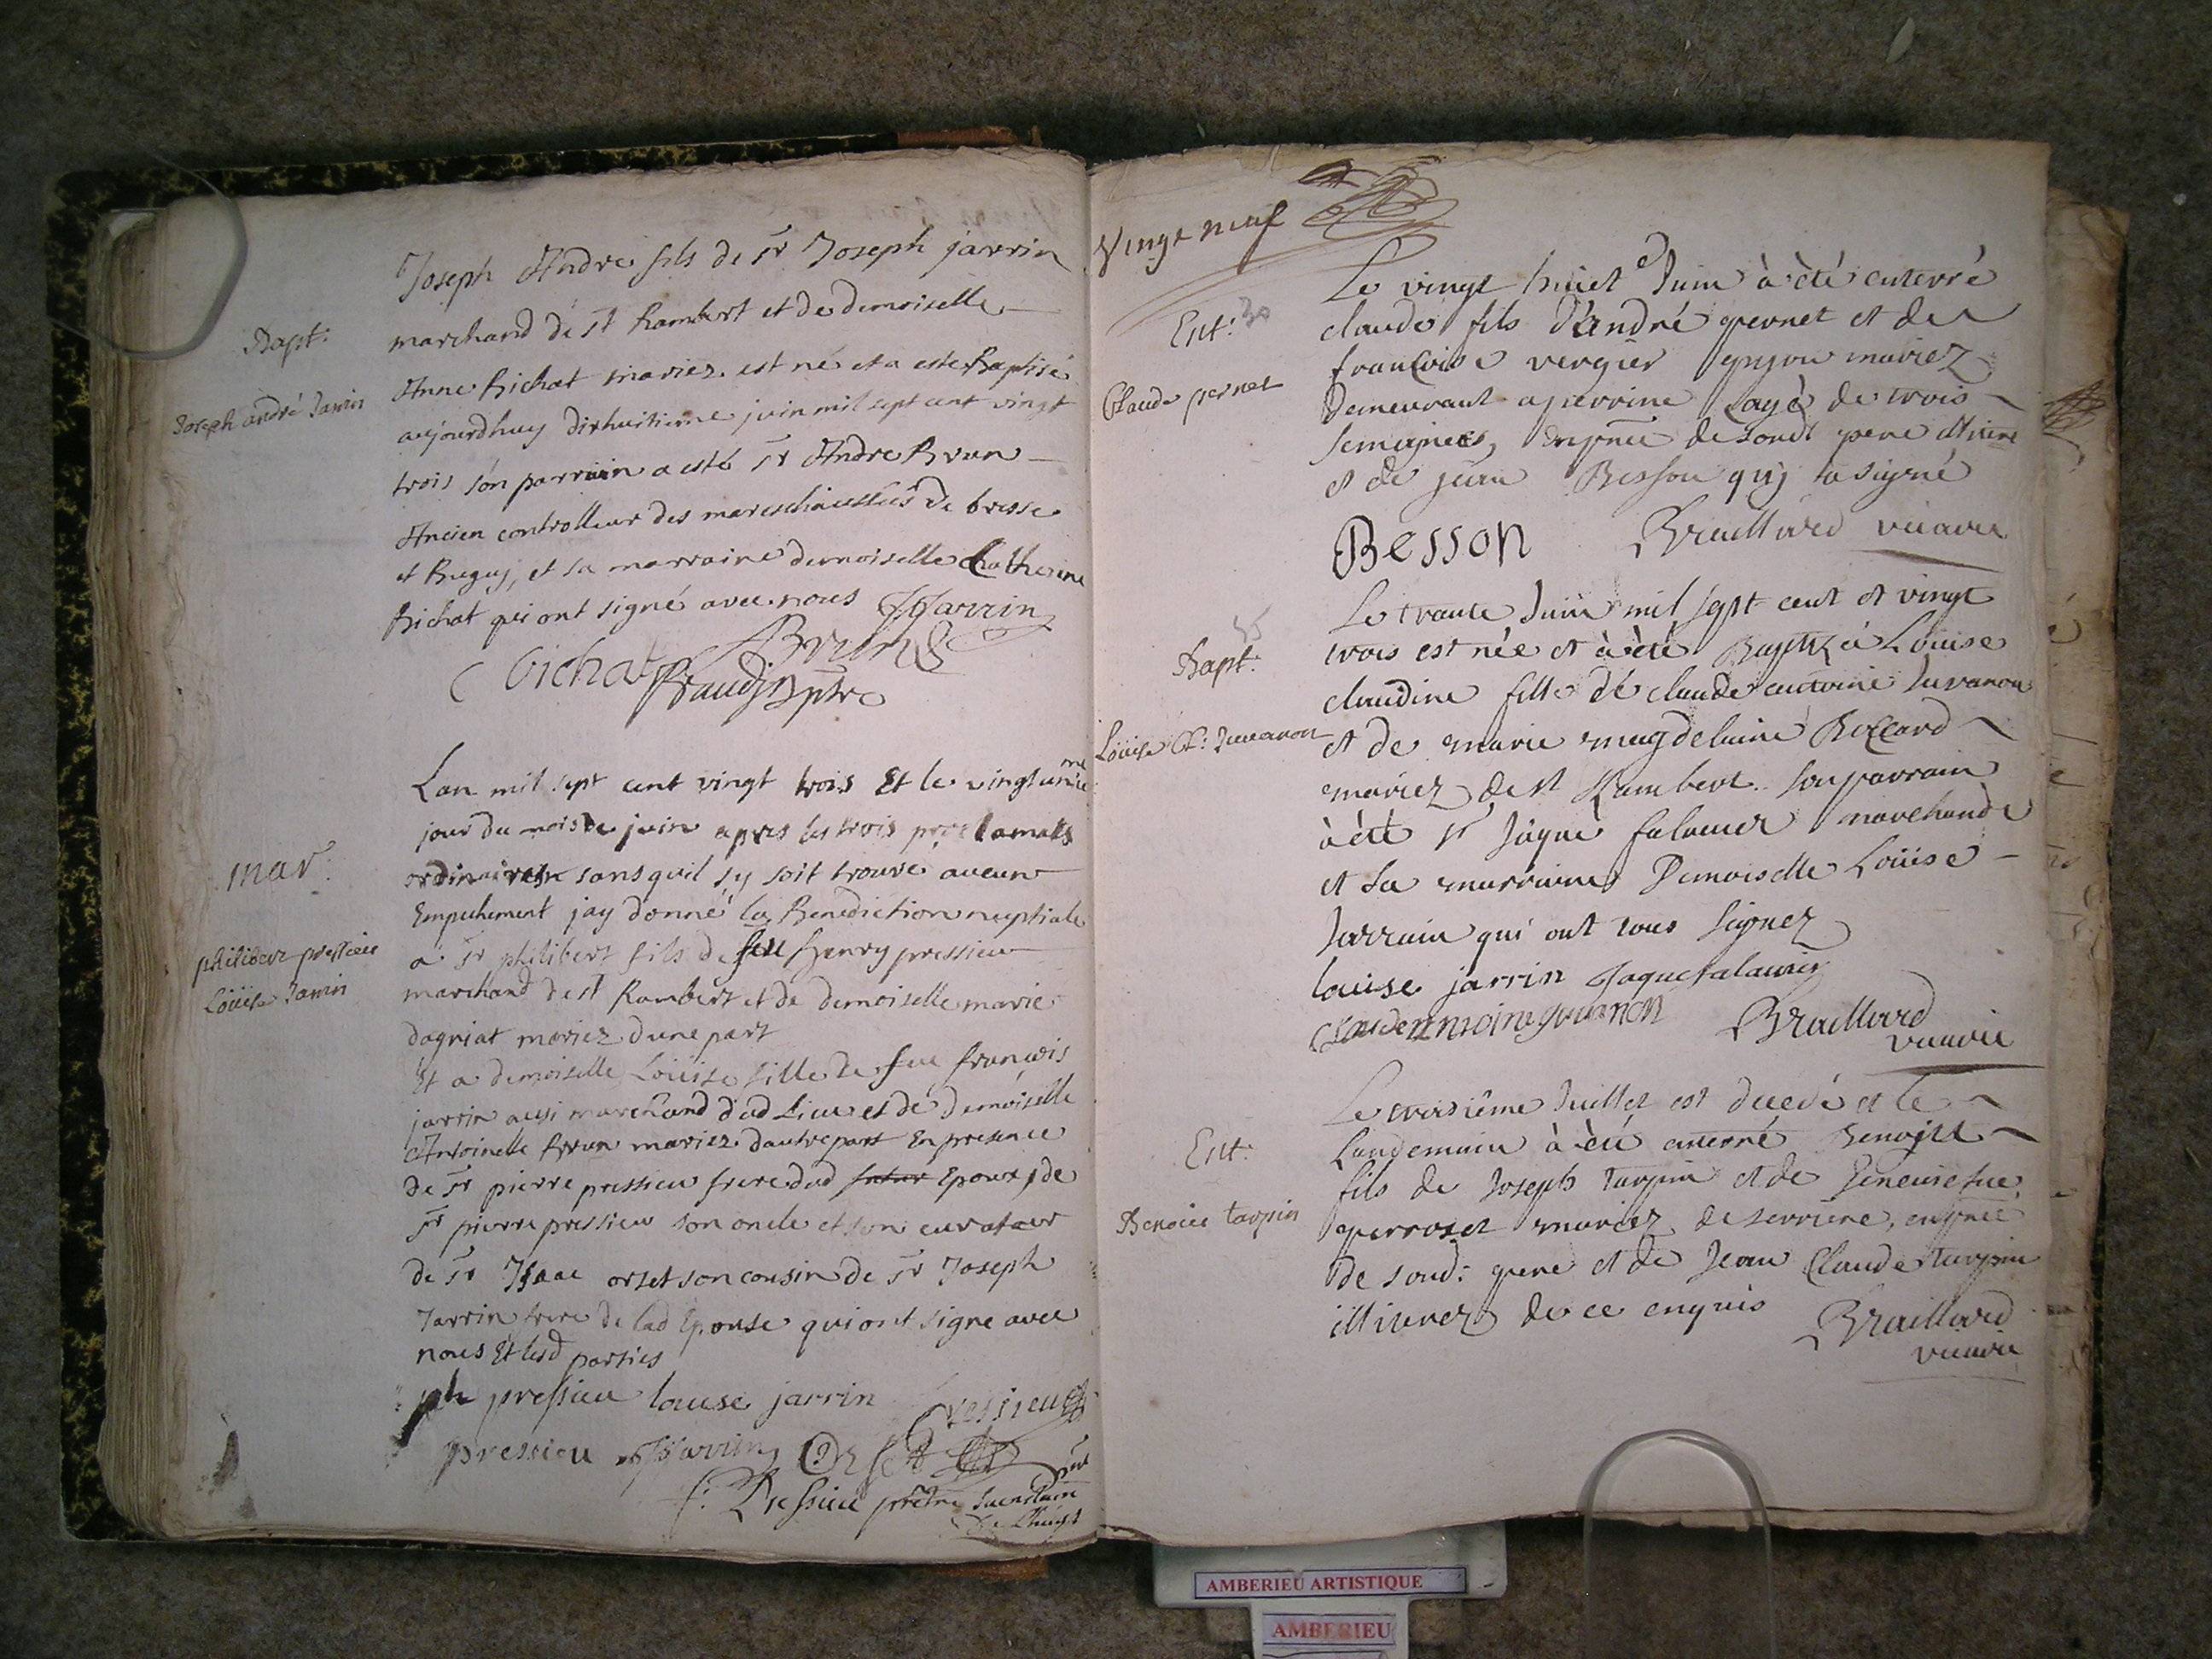 Bapt:
Joseph andré Jarrin
Joseph Andre fils de sr Joseph jarrin
marchand de st Rambert et de demoiselle
Anne Bichat mariez est né et a esté Baptisé
aujourdhuy dixhuitieme juin mil sept cent vingt
trois son parrain a esté sr Andre Brun
Ancien controlleur des mareschaussées de bresse
et Bugey, et sa marraine demoiselle Catherine
Bichat qui ont signé avec nous JJarrin
C Bichat Brun
ptre
mar:
philibert pressieu
Loüise Jarrin
Lan mil sept cent vingt trois Et le vingtunme
jour du mois de juin apres les trois proclamats
ordinaires sans quil sy soit trouvé aucun
Empechement jay donné la Benediction nuptiale
a sr philibert fils de feu henry pressieu
marchand de st Rambert et de demoiselle marie
dagniat mariez dune part
Et a demoiselle Louise fille de feu francois
jarrin ausi marchand dud Lieu et de Demoiselle
Antoinette Brun mariez dautre part En presence
de sr pierre pressieu frere dud futur Epoux, de
sr pierre pressieu son oncle et son curateur
de sr Isaac orset son cousin de sr Joseph
Jarrin frere de lad Epouse qui ont signe avec
nous Et lesd parties
ph pressieu louise jarrin Pressieu
pressieu JJarrin Orset
Pressieu prêtre
Vingt neuf
Ent: 30
Claude pernet
Le vingt huict e Juin à été enterré
claude fils d'André pernet et de
francoise vergier mariez
Demeurant a perrine agé de trois
semaines, enpnce de soudt pere illitere
et de jean Besson qui a signé
Besson Braillard vicaire
Bapt: 55
Loüise Cl: Juvanon
Le trante Juin mil sept cent et vingt
trois est née et à été Baptizéé Louise
claudine fille de claude antoine Juvanon
et de marie magdelaine Boccard
mariez de st Rambert. son parrain
à été sr Jâque falavier marchand
et sa marraine Demoiselle Loüise
Jarrain qui ont tous signez
louise jarrin Jaque falavier
Claudentoine Juvanon Braillard
vicaire
Ent:
Benoict tarpin
Le troisième Juillet est decedé et le
Landemain à été enterré Benoist
fils de Joseph tarpin et de Geneviefve
perroset mariez de serriere, enpnce
de soud: pere et de Jean Claude tarpin
illiterez de ce enquis Braillard
vicaire
AMBERIEU ARTISTIQUE
AMBERIEU